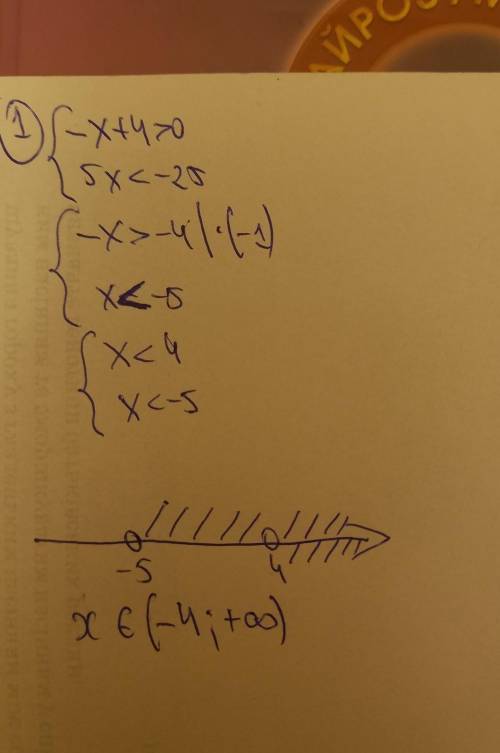 АЙРОС
1 { -x+4>0
5x<-25
{ -x>-4 | ·(-1)
x<-5
{ x<4
x<-5
-5 4
x ∈ (-4; +∞)